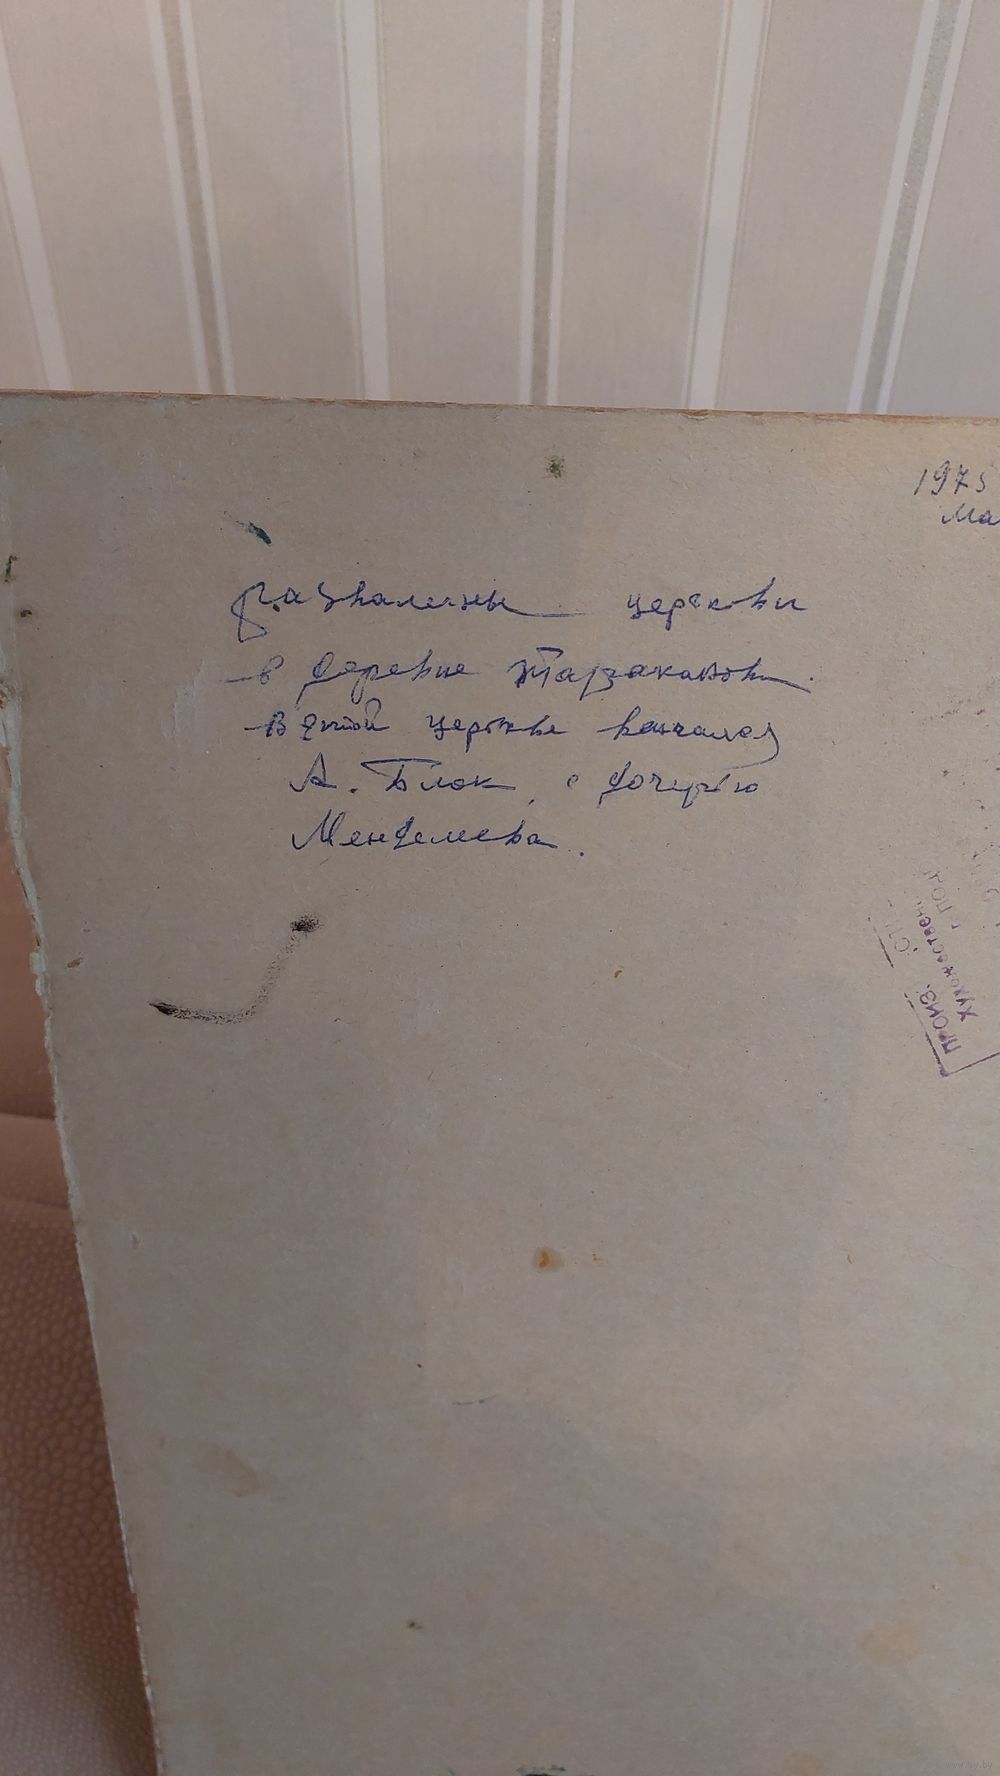 1975
Ма
Развалины церкви
в деревне Тараканово
В этой церкви венчался
А. Блок с дочерью
Менделеева.
ПРОИЗ.
Художествен
ПОД